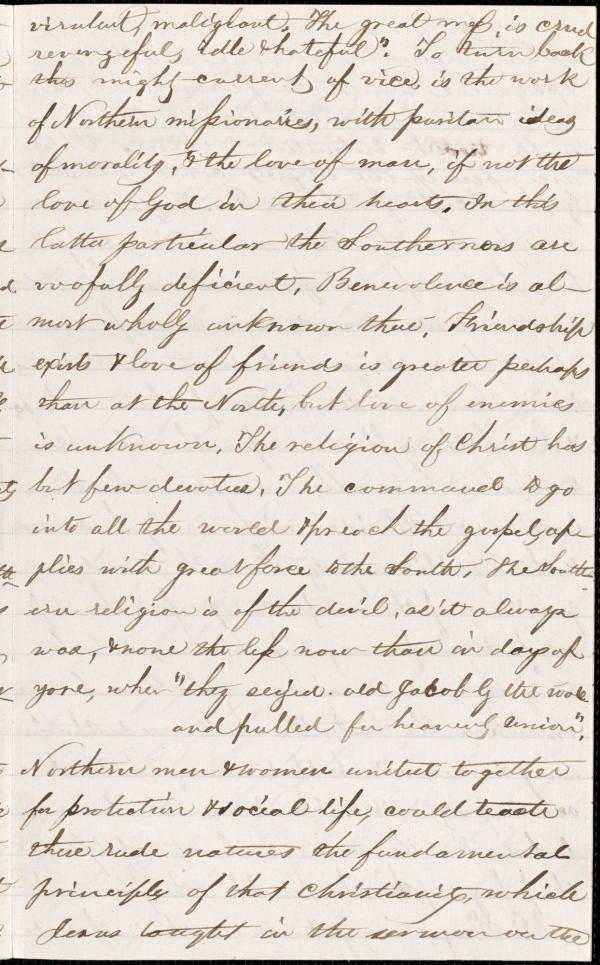 virulent, malignant. The great mass, is cruel
revengeful, idle & hateful". To turn back
this mighty current of vice, is the work
of Northern missionaries, with puritan ideas
of morality, & the love of man, if not the
love of God in their hearts. In this
latter particular the Southerners are
woofully deficient, Benevolence is al-
most wholly unknown there. Friendship
exists & love of friends is greater perhaps
than at the North, but love of enemies
is unknown. The religion of Christ has
but few devotees. The command to go
into all the world & preach the gospel, ap-
plies with great force to the South. The South-
ern religion is of the devil, as it always
was, & none the less now than in days of
yore, when "they seized old Jacob by the wool
and pulled for heavenly union".
Northern men & women united together
for protection & social life, could teach
these rude natures the fundamental
principles of that Christianity, which
Jesus taught in the sermon on the